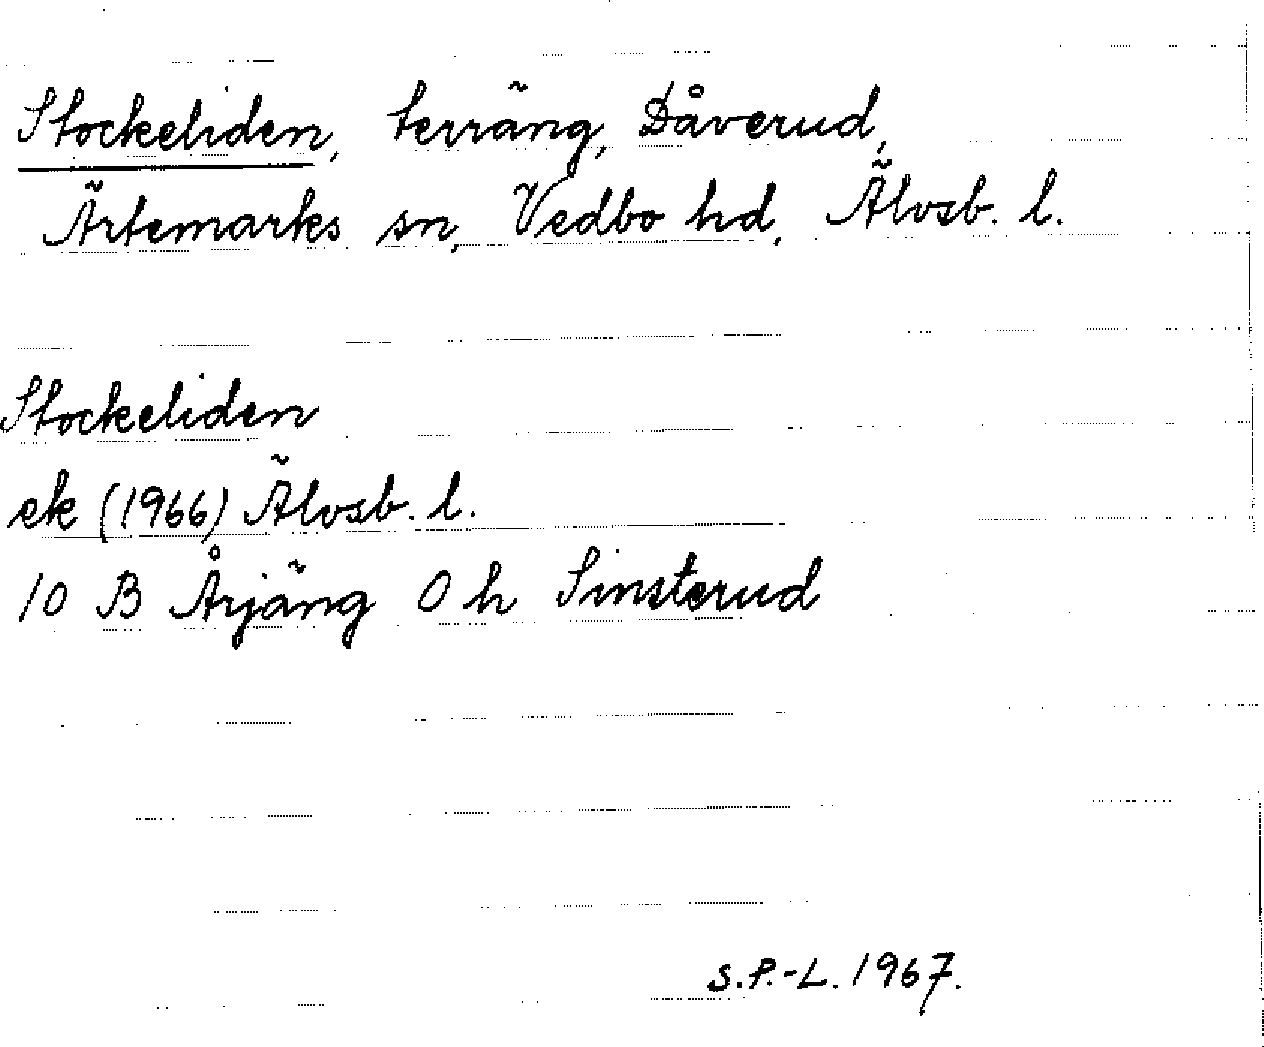 Stockeliden, terräng, Dåverud,
Ärtemarks sn, Vedbo hd, Älvsb. l.
Stockeliden
ek (1966) Älvsb. l.
10 B Årjäng 0 h Sinsterud
S.P.-L. 1967.